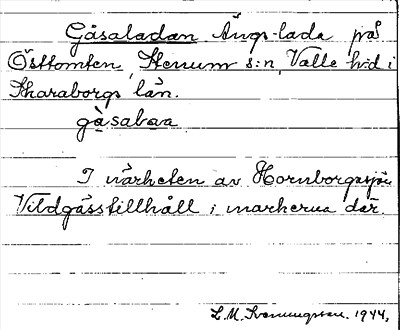 Gåsaladan Ängs-lada på
Östtomten, Henum s:n, Valle h:d i
Skaraborgs län.
gåsalaa
I närheten av Hornborgasjön
Vildgässtillhåll i markerna där.
L. M. Svenungsson. 1944.